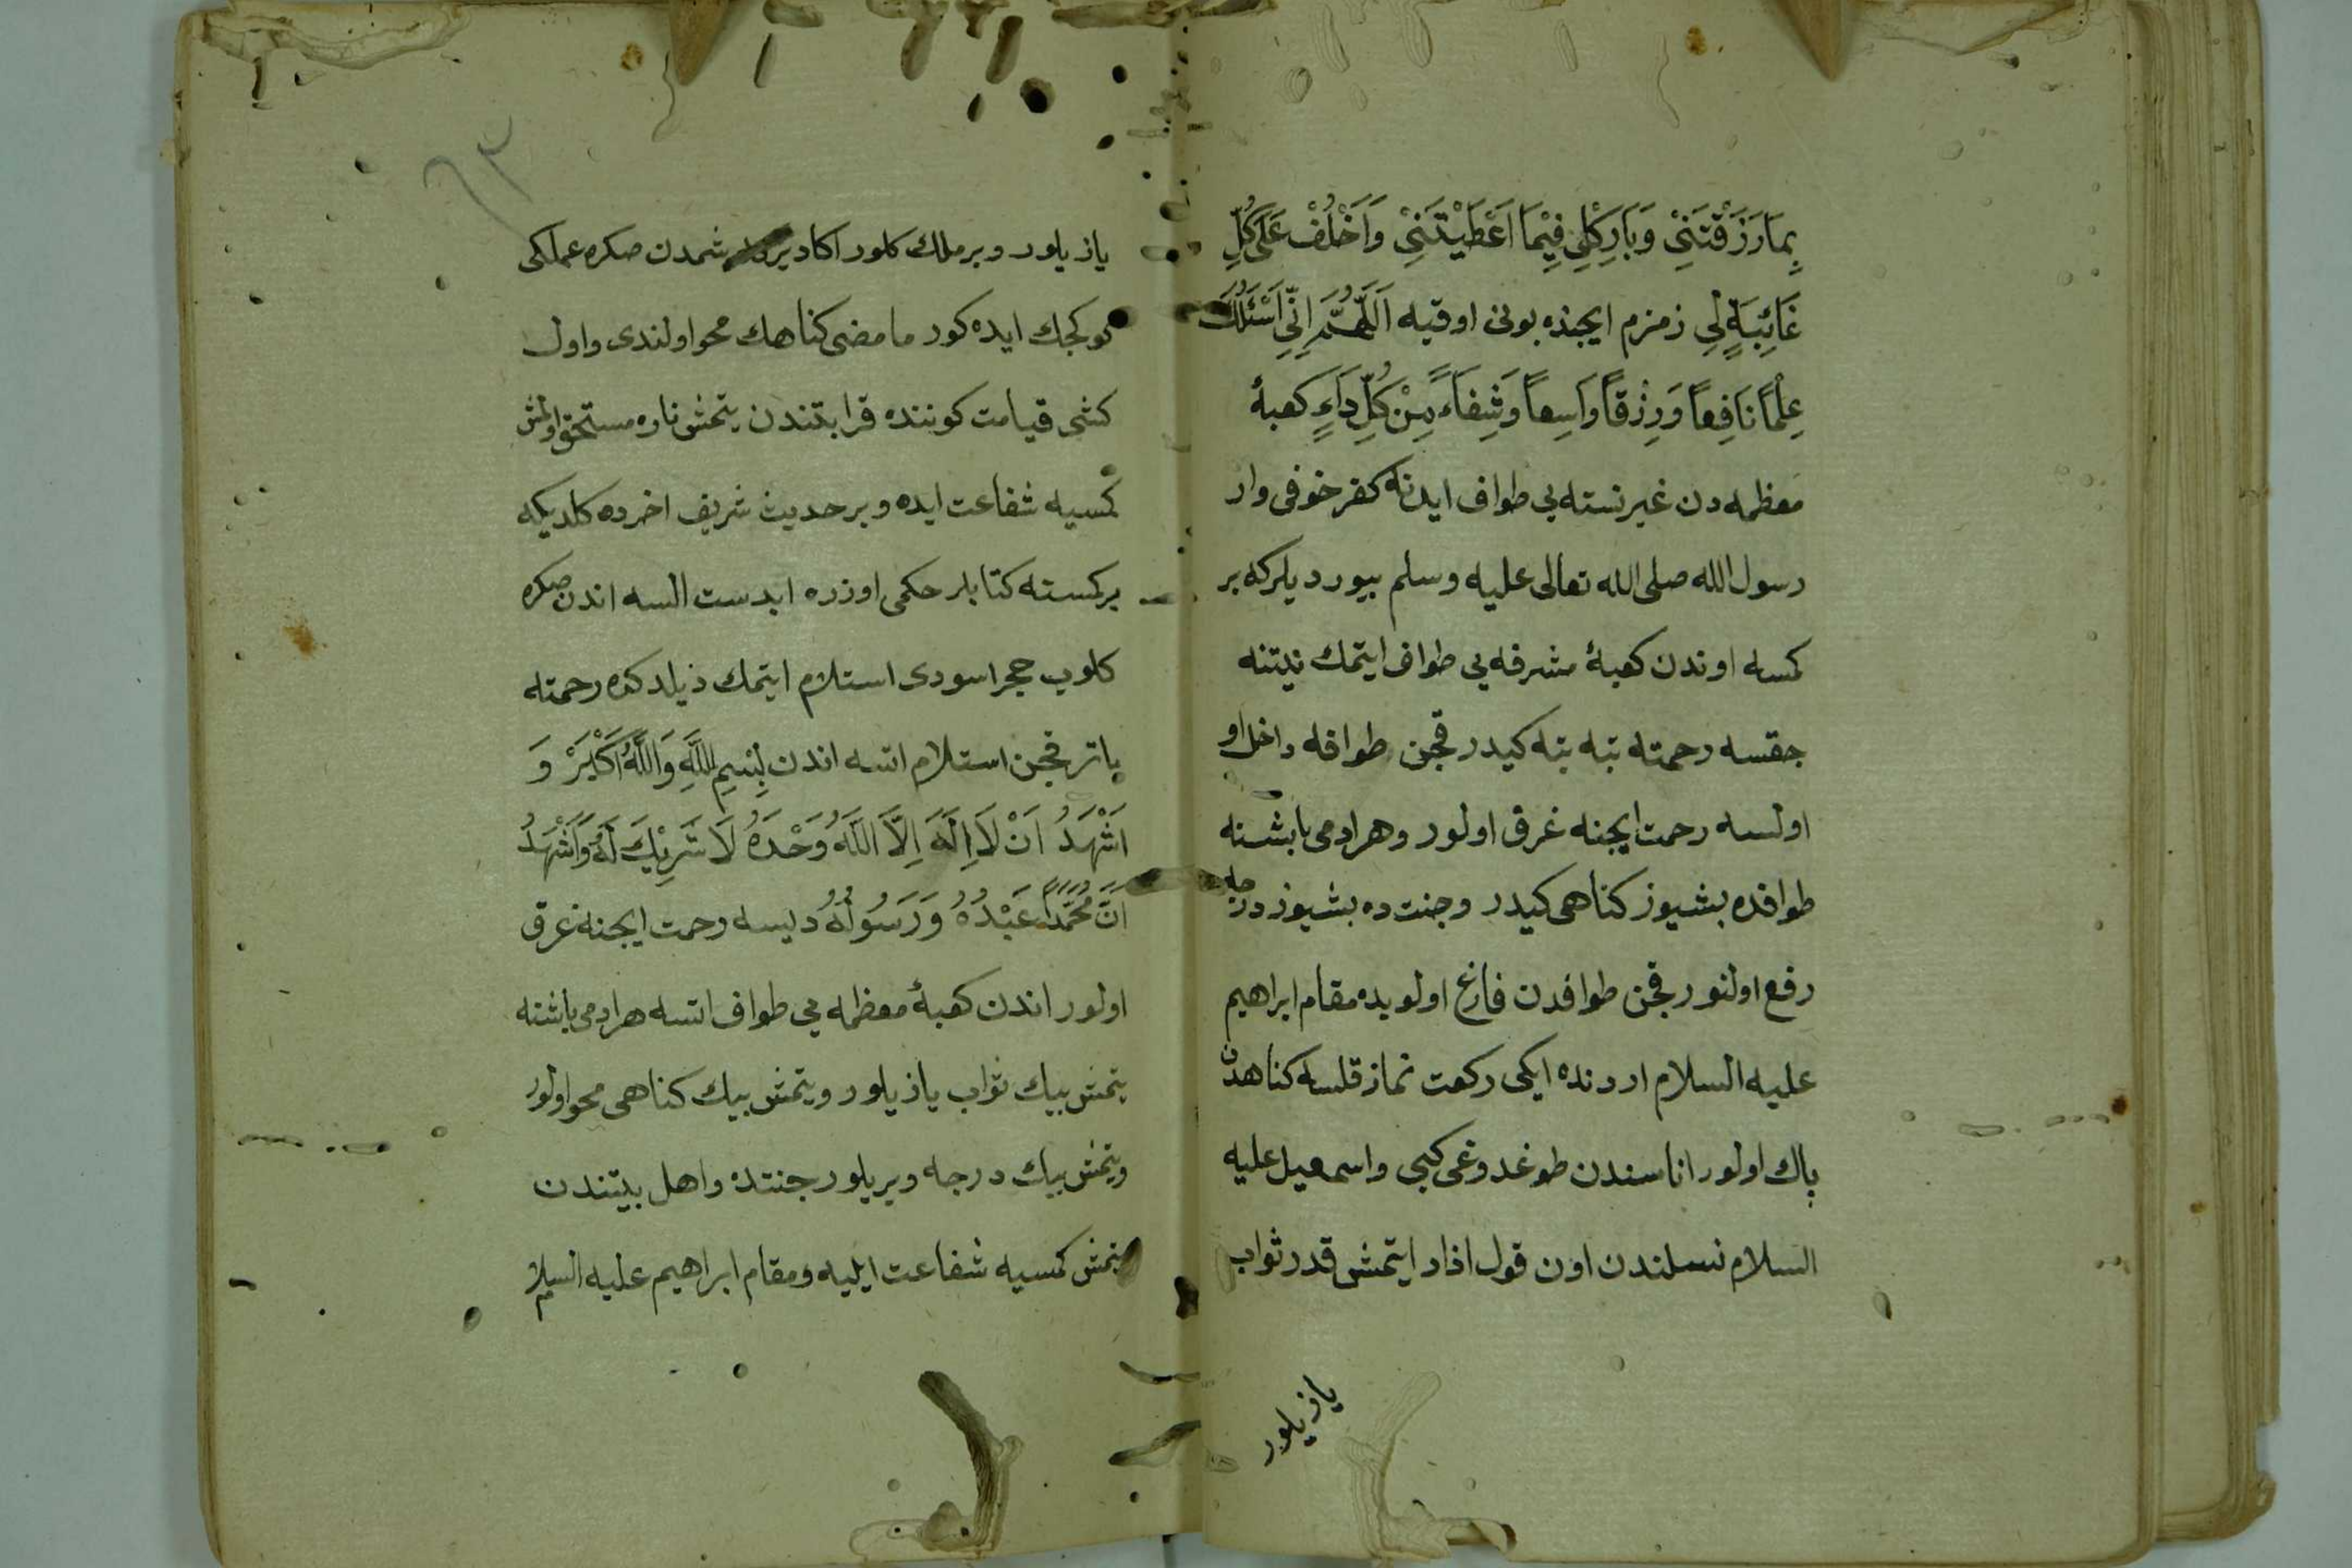 بِمَا رَزَقْتَنِيْ وَبَارِكْلِي فِيْمَا اَعْطَيْتَنِيْ وَاَخْلُفْ عَلَى كُلِّ
غَائِبَةٍ لِي زمزم ايچنده بونى اوقيه اَللّٰهُمَّ اِنِّي اَسْئَلُكَ
عِلْمًا نَافِعًا وَرِزْقًا وَاسِعًا وَشِفَاءً مِنْ كُلِّ دَاءٍ كعبهٔ
معظمه دن غير نسته يى طواف ايدنه كفر خوفى وار
رسول الله صلى الله تعالى عليه وسلم بيورديلركه بر
كمسه اوندن كعبهٔ مشرفه يى طواف ايتمك نيتنه
چقسه رحمته بته بته كيدر قچن طوافه داخل او
اولسه رحمت ايچنه غرق اولور وهر ادمى باشنه
طوافده بشيوز كناهى كيدر وجنت ده بشيوز درجه
رفع اولنور قچن طوافدن فارغ اولويده مقام ابراهيم
عليه السلام اردنده ايكى ركعت نماز قلسه كناهدن
پاك اولور اناسندن طوغدوغى كبى واسمعيل عليه
السلام نسلندن اون قول اذاد ايتمش قدر ثواب
يازيلور
٦٣
يازيلور وبر ملك كلور اكا دير شمدن صكره عملكى
كوكچك ايده كور ما مضى كناهك محو اولندى واول
كشى قيامت كوننده قرابتندن يتمش ناره مستحق اولمش
كمسيه شفاعت ايده وبر حديث شريف اخرده كلديكه
بر كمسته كتابلر حكمى اوزره ابدست السه اندن صكره
كلوب حجر اسودى استلام ايتمك ذيلدكده رحمته
باتر قچن استلام اتسه اندن بِسْمِ اللّٰهِ وَاللّٰهُ اَكْبَرْ وَ
اَشْهَدُ اَنْ لَا اِلَهَ اِلَّا اللّٰهُ وَحْدَهُ لَا شَرِيْكَ لَهُ وَاَشْهَدُ
اَنَّ مُحَمَّدًا عَبْدُهُ وَرَسُولُهُ ديسه رحمت ايچنه غرق
اولور اندن كعبهٔ معظمه يى طواف اتسه هر ادمى باشنه
يتمش بيك ثواب يازيلور ويتمش بيك كناهى محو اولور
ويتمش بيك درجه ويريلور جنتده واهل بيتندن
يتمش كمسيه شفاعت ايليه ومقام ابراهيم عليه السلام